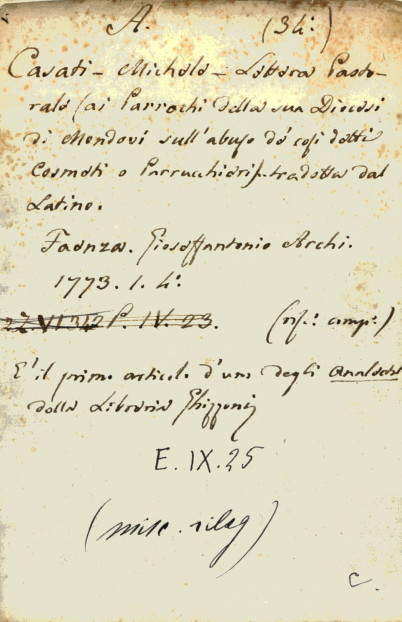 A. (34.)
Casati - Michele - Lettera Pasto-
rale (ai Parrochi della sua Diocesi
di Mondovì sull'abuso de' così detti
Cosmoti o Parrucchieri) tradotta dal
Latino.
Faenza. Gioseffantonio Archi.
1773. 1. 4.º
P. IV. 23. (ris.º comp.º)
E' il primo articolo d'uno degli
della Libreria Ghizzoni
E. IX. 25
(misc. rileg)
C.